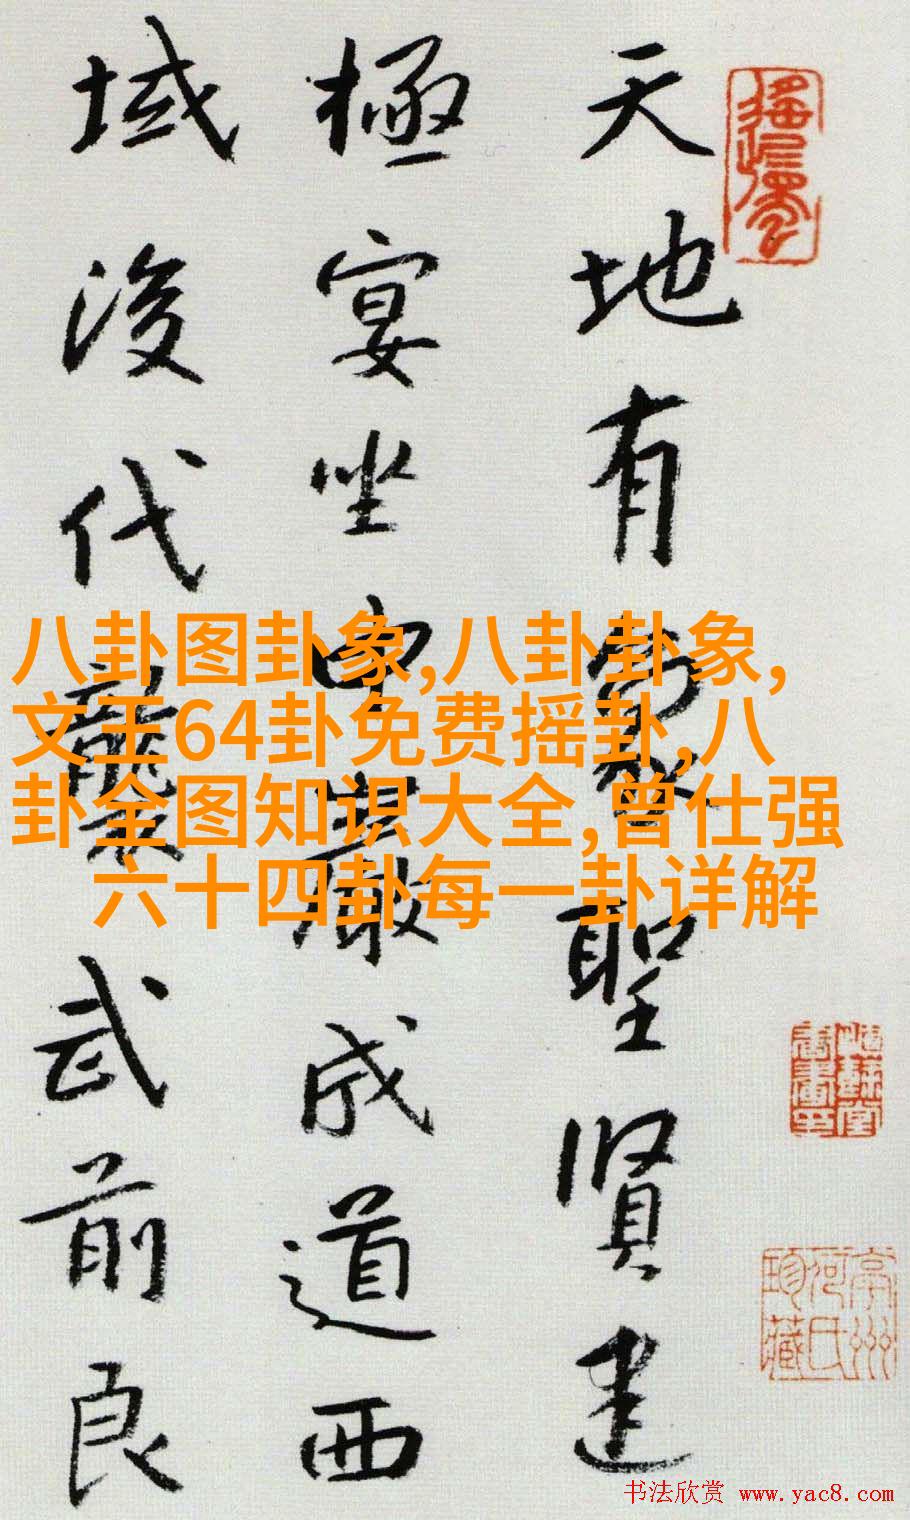 天地有聖賢建
極宴坐中嚴成道西
域後代襲武前良
八卦图卦象,八卦卦象,
文王64卦免费摇卦,八
卦全图知识大全,曾仕强
六十四卦每一卦详解
书法欣赏 www.yac8.com